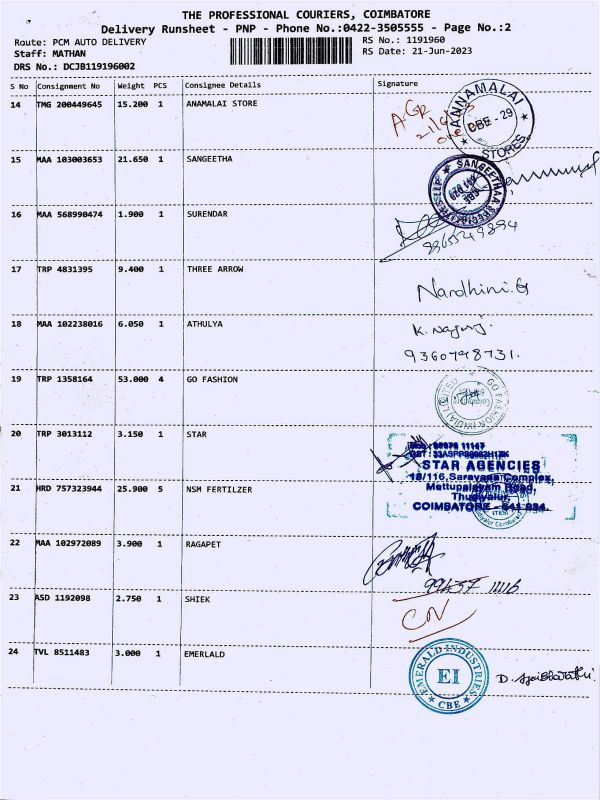 THE PROFESSIONAL COURIERS, COIMBATORE
Delivery Runsheet - PNP - Phone No.:0422-3505555 - Page No.:2
Route: PCM AUTO DELIVERY
RS No.: 1191960
Staff: MATHAN
RS Date: 21-Jun-2023
DRS No.: DCJB119196002
S No Consignment No Weight PCS Consignee Details Signature
14 TMG 200449645 15.200 1 ANAMALAI STORE
ANNAMALAI
CBE - 29
STORES
15 MAA 103003653 21.650 1 SANGEETHA
16 MAA 568990474 1.900 1 SURENDAR
9965549894
17 TRP 4831395 9.400 1 THREE ARROW
Nandhini.G
18 MAA 102238016 6.050 1 ATHULYA
K. Nagaraj.
9360798731.
19 TRP 1358164 53.000 4 GO FASHION
GO FASHION (INDIA) LIMITED
20 TRP 3013112 3.150 1 STAR
STAR AGENCIES
18/116, Saravana Complex,
Mettupalayam Road,
Thudiyalur,
COIMBATORE - 641 034.
21 HRD 757323944 25.900 5 NSM FERTILZER
22 MAA 102972089 3.900 1 RAGAPET
99437 11116
23 ASD 1192098 2.750 1 SHIEK
24 TVL 8511483 3.000 1 EMERLALD
EMERALD INDUSTRIES
EI
CBE